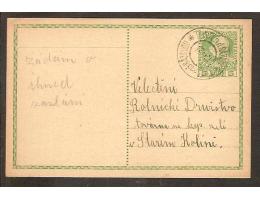 žádám o
ihned
zaslání
Velectění
Rolnické Družstvo
továrna na
v Starém Kolíně.